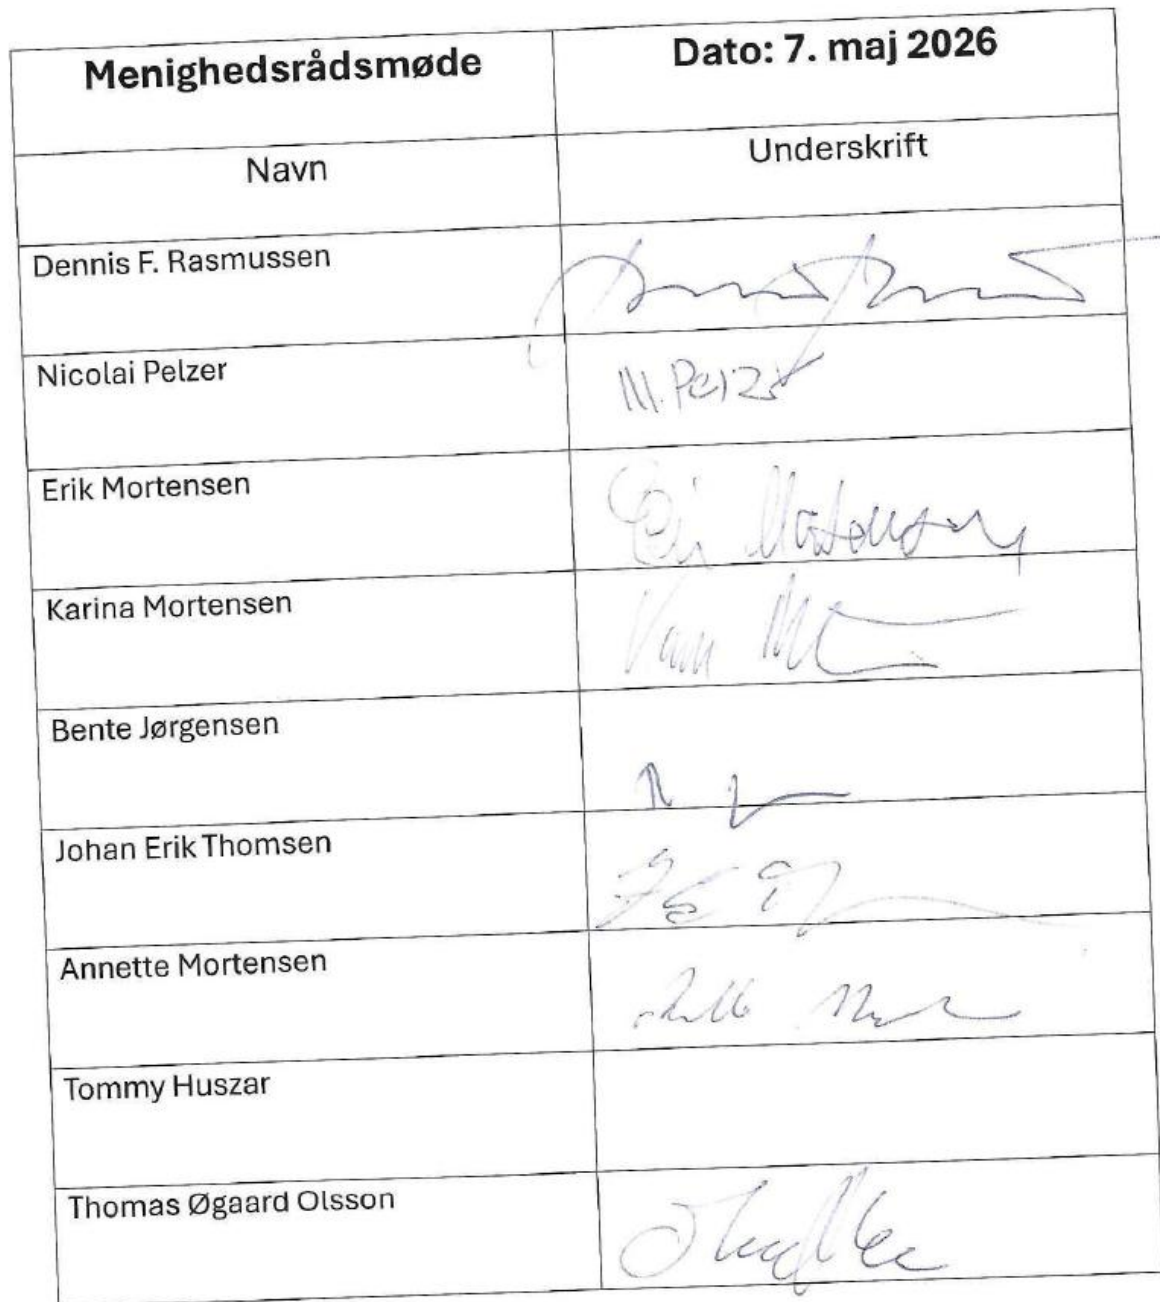 Menighedsrådsmøde
Dato: 7. maj 2026
Navn
Underskrift
Dennis F. Rasmussen
Nicolai Pelzer
Erik Mortensen
Karina Mortensen
Bente Jørgensen
Johan Erik Thomsen
Annette Mortensen
Tommy Huszar
Thomas Øgaard Olsson